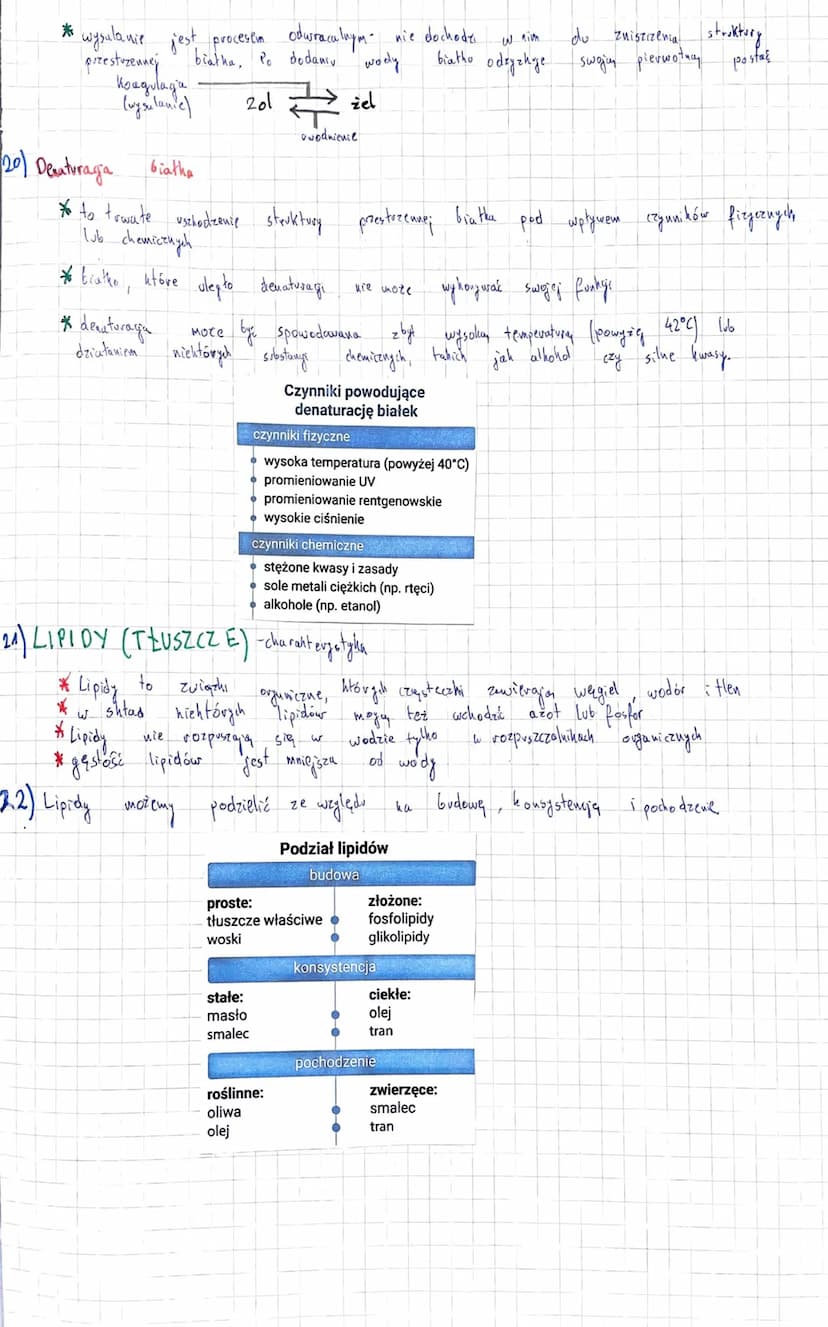 * wysalanie jest procesem odwracalnym- nie dochodzi w nim do zniszczenia struktury
przestrzennej białka. Po dodaniu wody białko odzyskuje swoją pierwotną postać
koagulacja
(wysalanie)
zol żel
uwodnienie
20) Denaturacja białka
* to trwałe uszkodzenie struktury przestrzennej białka pod wpływem czynników fizycznych
lub chemicznych
* białko, które uległo denaturacji nie może wykonywać swojej funkcji
* denaturacja może być spowodowana zbyt wysoką temperaturą (powyżej 42°C) lub
działaniem niektórych substancji chemicznych, takich jak alkohol czy silne kwasy.
Czynniki powodujące
denaturację białek
czynniki fizyczne
wysoka temperatura (powyżej 40°C)
promieniowanie UV
promieniowanie rentgenowskie
wysokie ciśnienie
czynniki chemiczne
stężone kwasy i zasady
sole metali ciężkich (np. rtęci)
alkohole (np. etanol)
21) LIPIDY (TŁUSZCZE) - charakterystyka
* Lipidy to związki organiczne, których cząsteczki zawierają węgiel, wodór i tlen
* w skład niektórych lipidów mogą też wchodzić azot lub fosfor
* Lipidy nie rozpuszczają się w wodzie tylko w rozpuszczalnikach organicznych
* gęstość lipidów jest mniejsza od wody
22) Lipidy możemy podzielić ze względu na budowę, konsystencję i pochodzenie
Podział lipidów
budowa
proste: złożone:
tłuszcze właściwe fosfolipidy
woski glikolipidy
konsystencja
stałe: ciekłe:
masło olej
smalec tran
pochodzenie
roślinne: zwierzęce:
oliwa smalec
olej tran